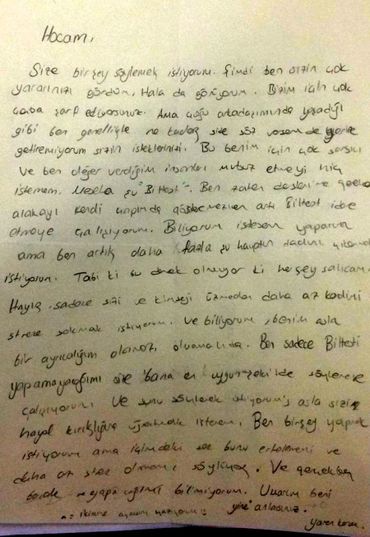 Hocam,
Size birşey söylemek istiyorum. Şimdi ben sizin çok
yararınızı gördüm. Hala da görüyorum. Bizim için çok
çaba sarf ediyorsunuz. Ama çoğu arkadaşımında yaşadığı
gibi ben genellikle ne kadar size söz versem de yerine
getiremiyorum sizin isteklerinizi. Bu benim için çok
ve ben değer verdiğim insanları etmeyi hiç
istemem. Mesela şu "Biltest". Ben zaten derslerime
alakayı kendi artı Biltest
etmeye çalışıyorum. Biliyorum istesem yaparım
ama ben artık daha fazla şu hayatın tadını
istiyorum. Tabi ki bu demek olmuyor ki herşeyi salıcam.
Hayır, sadece sizi ve kimseyi üzmeden daha az kendimi
strese sokmak istiyorum. Ve biliyorum benim asla
bir ayrıcalığım Ben sadece Biltesti
yapamayacağımı size bana en uygun şekilde söylemeye
çalışıyorum. Ve şunu söylemek istiyorum asla sizi
hayal kırıklığına uğratmak istemem. Ben birşey yapmak
istiyorum ama içimdeki ses bunu ertelememi ve
daha az stres olmamı söylüyor. Ve gerçekten
bilmiyorum. Umarım beni
anlarsınız.